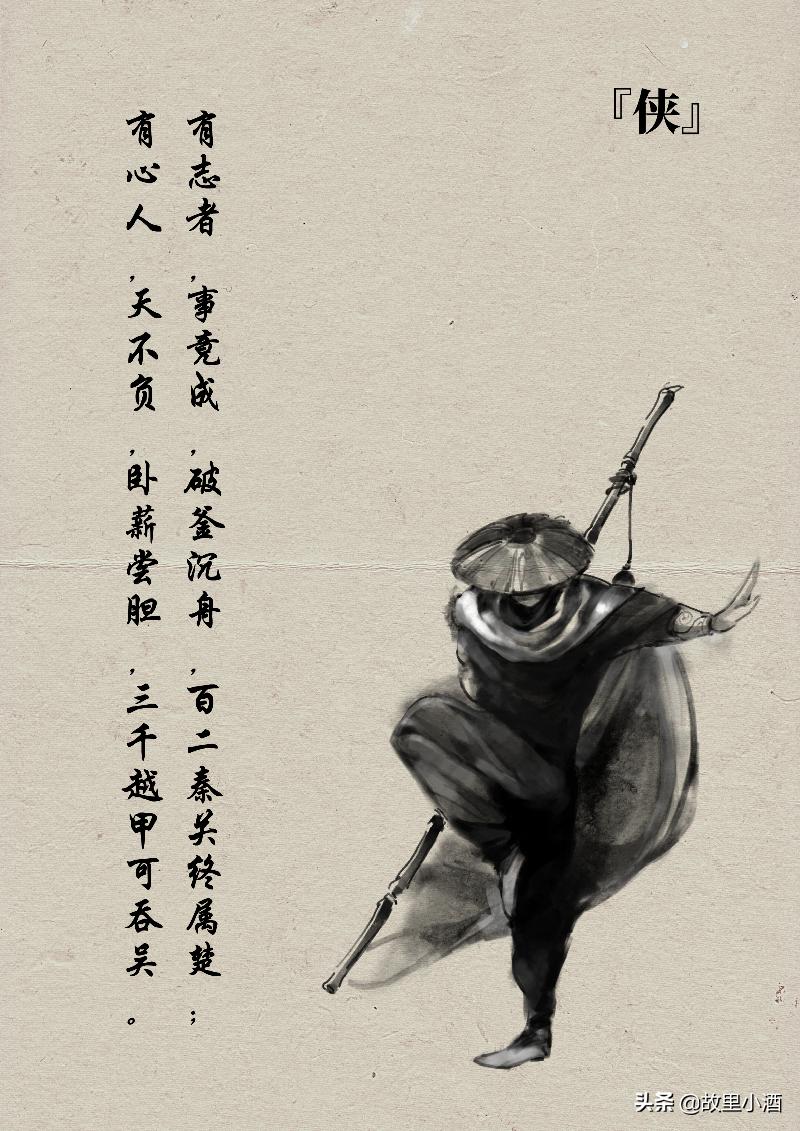 『侠』
有志者,事竟成,破釜沉舟,百二秦关终属楚;
有心人,天不负,卧薪尝胆,三千越甲可吞吴。
头条 @故里小酒